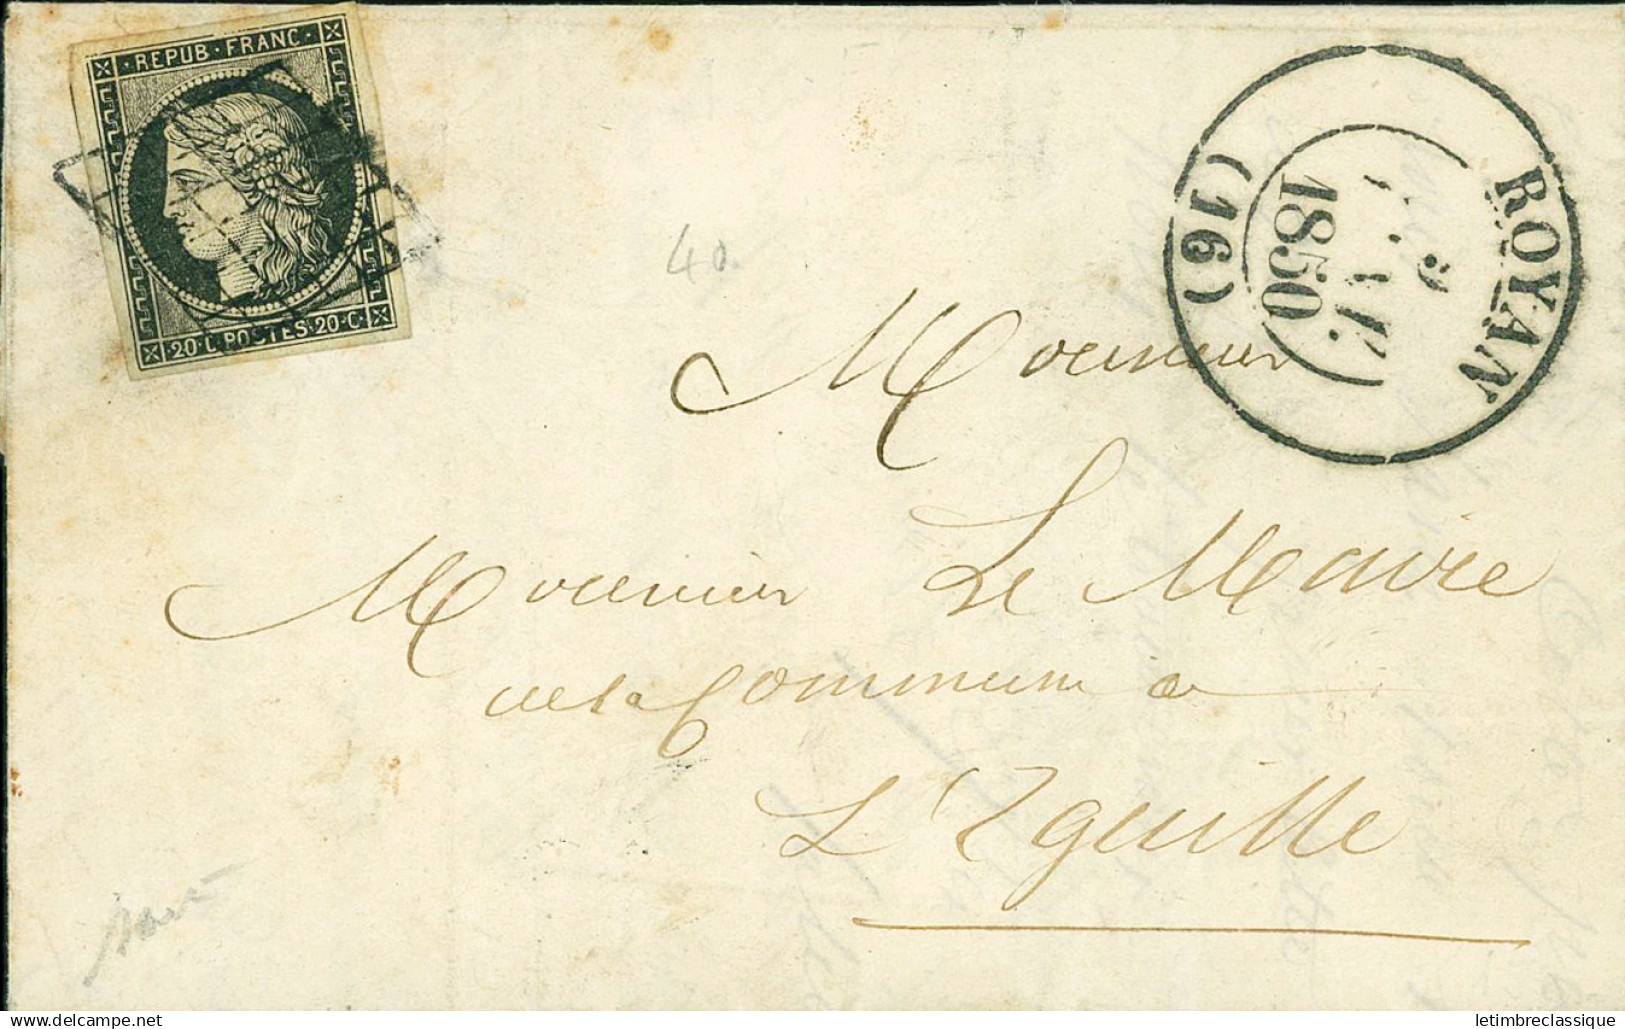 REPUB · FRANC ·
20 · C. POSTES · 20 · C.
ROYAN
9
1850
(16)
40.
Monsieur
Monsieur Le Maire
de la Commune de
L'Eguille
delcampe.net
letimbreclassique